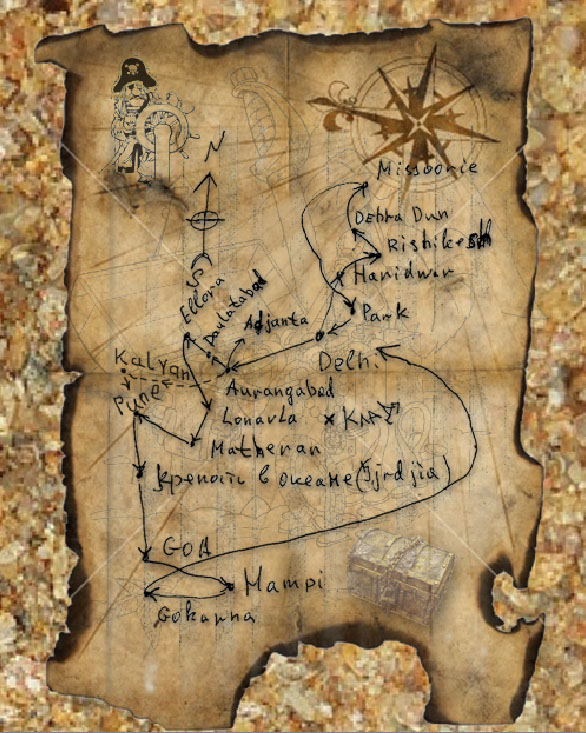 N
Missoorie
Dehra Dun
Rishikesh
Haridwar
Park
S
Ellora
Daulatabad
Adjanta
Delhi
Kalyan
Pune
Aurangabad
Lonavla
x КлаД
Matheran
крепость в океане (Sjrdjia)
GOA
Mampi
Gokarna